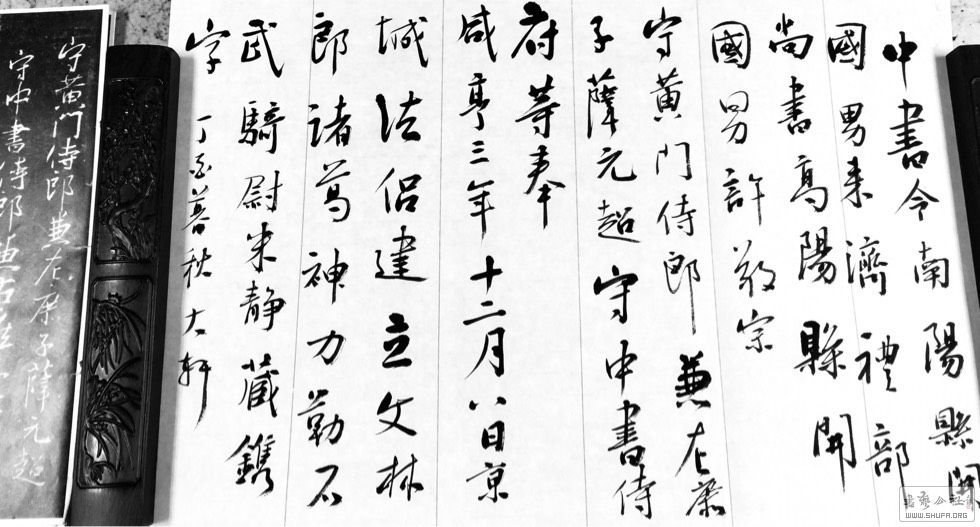 中書令南陽縣開
國男来濟禮部
尚書高陽縣開
國男許敬宗
守黄門侍郎兼左庶
子薛元超守中書侍
府等奉
咸亨三年十二月八日京
城法侣建立文林
郎諸葛神力勒石
武騎尉朱静藏鐫
字 丁酉暮秋大軒
守黄門侍郎兼左庶子薛元超
守中書侍郎兼右
WWW.SHUFA.ORG